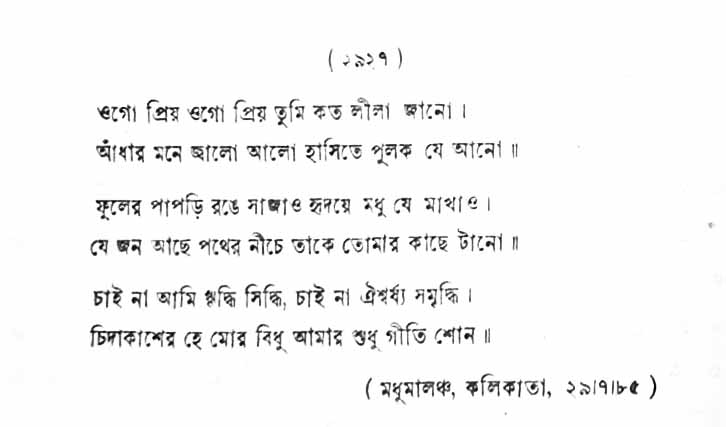 ( ২৯২৭ )
ওগো প্রিয় ওগো প্রিয় তুমি কত লীলা জানো ।
আঁধার মনে জ্বালো আলো হাসিতে পুলক যে আনো ॥
ফুলের পাপড়ি রঙে সাজাও হৃদয়ে মধু যে মাখাও ।
যে জন আছে পথের নীচে তাকে তোমার কাছে টানো ॥
চাই না আমি ঋদ্ধি সিদ্ধি, চাই না ঐশ্বর্য্য সমৃদ্ধি ।
চিদাকাশের হে মোর বিধু আমার শুধু গীতি শোন ॥
( মধুমালঞ্চ, কলিকাতা, ২৯।৭।৮৫ )